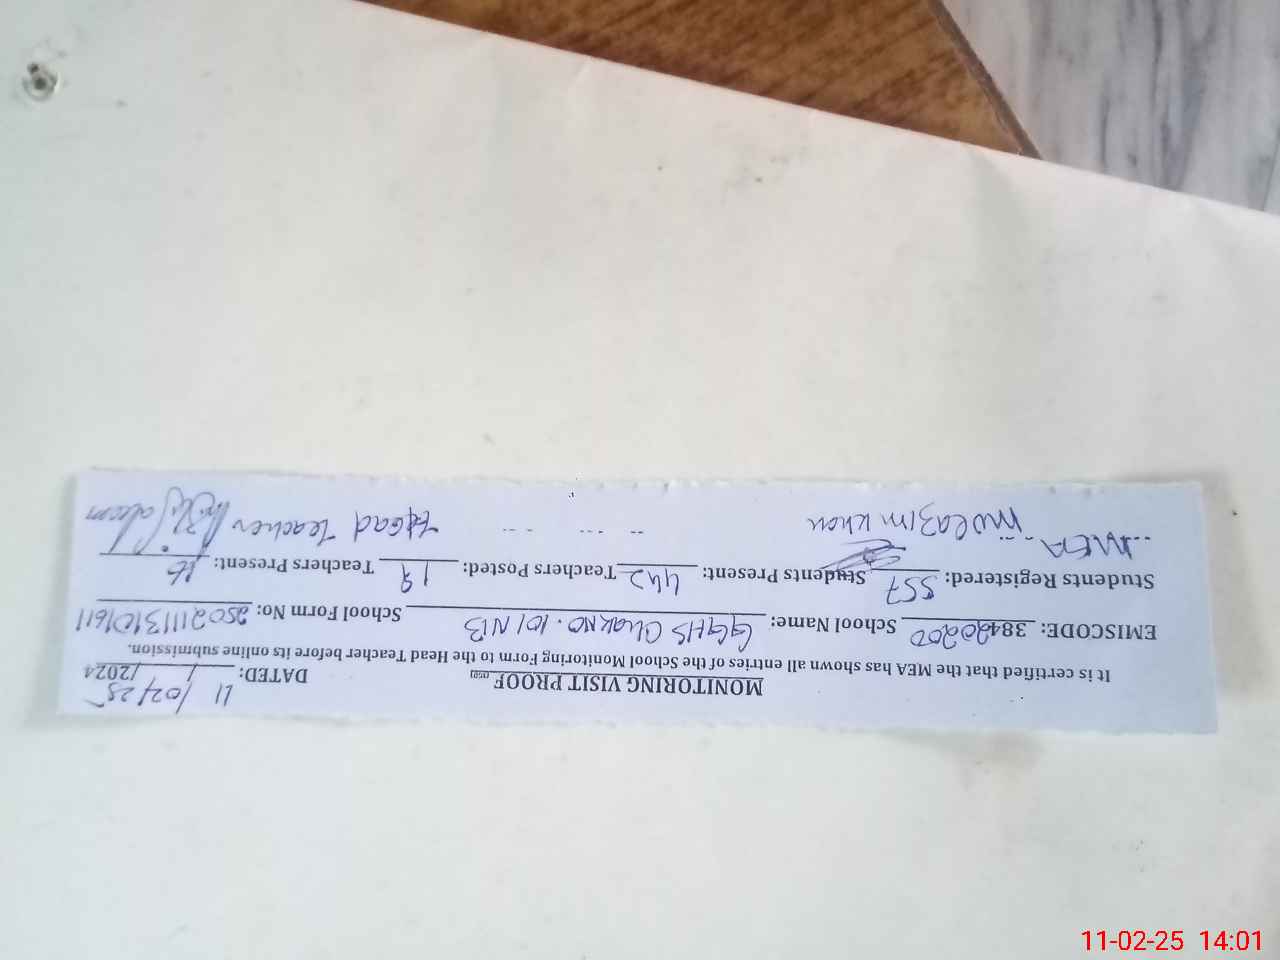 MONITORING VISIT PROOF
DATED: 11/02/25 / /2024
It is certified that the MEA has shown all entries of the School Monitoring Form to the Head Teacher before its online submission.
EMISCODE: 38420200 School Name: GGHS Chak NO. 101 NB School Form No: 25021113101611
Students Registered: 557 Students Present: 442 Teachers Posted: 19 Teachers Present: 16
MEA Mulazim Khan Head Teacher
11-02-25 14:01